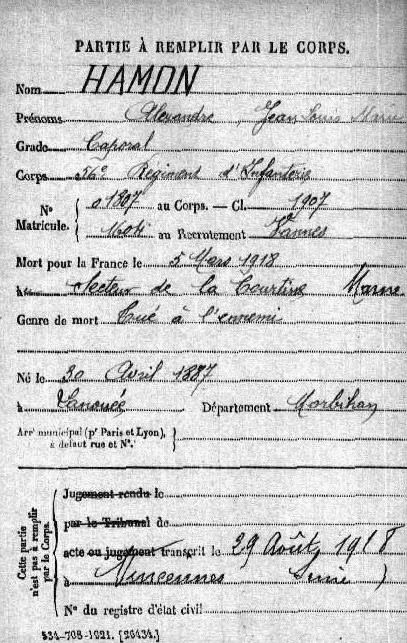 PARTIE À REMPLIR PAR LE CORPS.
Nom HAMON
Prénoms Alexandre Jean Louis Marie
Grade Caporal
Corps Régiment d'Infanterie
N° Matricule. { 01807 au Corps. — Cl. 1907
au Recrutement Vannes
Mort pour la France le 5 Mars 1918
Secteur de la Courtine Marne
Genre de mort Tué à l'ennemi
Né le 30 Avril 1887
à Lanouée Département Morbihan
Arr¹ municipal (p¹ Paris et Lyon), à défaut rue et N°. }
Cette partie n'est pas à remplir par le Corps.
Jugement rendu le
par le Tribunal de
acte ou jugement transcrit le 29 Août 1918
à Vincennes Seine )
N° du registre d'état civil
534-708-1921. [26434.]